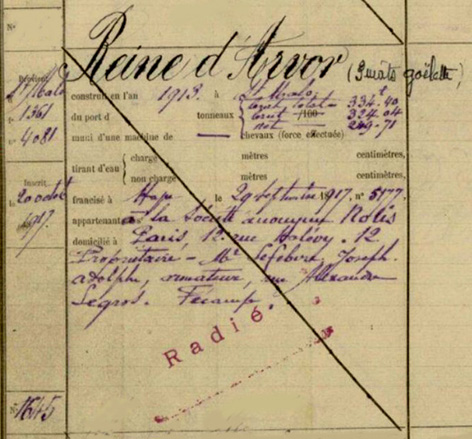 N°
Reine d'Arvor (3 mâts goëlette)
Dépôt
St Malo
f° 1361
n° 4081
construit en l'an 1913. à St Malo
du port d tonneaux total 334.40
brut /100 324.04
net 249.71
muni d'une machine de — chevaux (force effectuée)
tirant d'eau { chargé mètres centimètres,
non chargé mètres centimètres,
Inscrit
le 20 octobre
1917.
francisé à le 29 septembre 1917, n° 5177,
appartenant à la Société anonyme
domicilié à Paris, 12. rue Halévy. 12
Propriétaire - Mr Lefebvre, Joseph.
adolphe, armateur, rue Alexandre
Legros. Fécamp.
Radié.
N° 1645